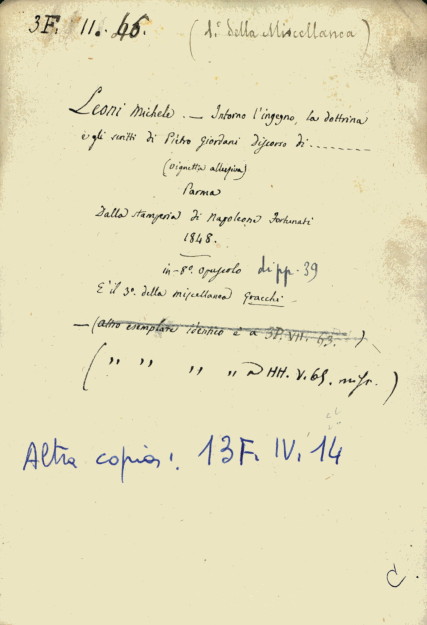 3F. II. 46. (1.° della Miscellanea)
Leoni Michele. — Intorno l'ingegno, la dottrina
e gli scritti di Pietro Giordani discorso di .........
(vignetta allegorica)
Parma
Dalla stamperia di Napoleone Fortunati
1848.
in-8.° opuscolo di pp. 39
È il 3.° della miscellanea Gracchi —
— (altro esemplare identico è a 3P. VII. 63.)
( " " " " a HH. V. 61. )
Altra copia: 13F. IV. 14
C.